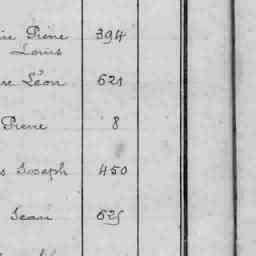 Pierre 394
Louis
Léon 621
Pierre 8
Joseph 450
Jean 625